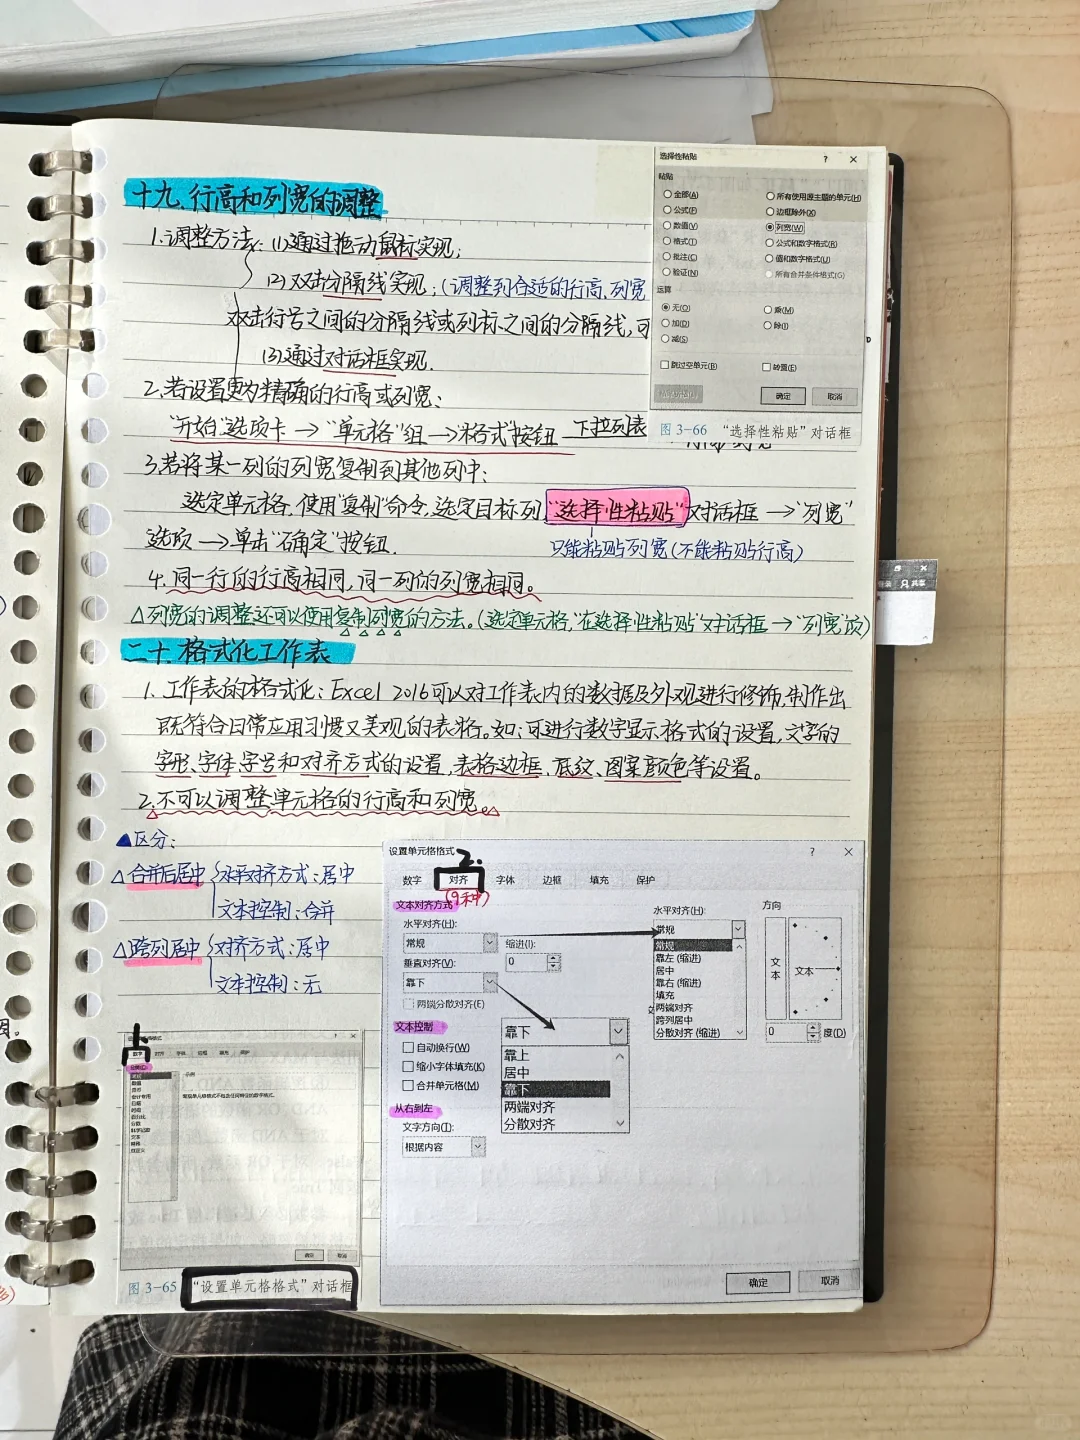 十九、行高和列宽的调整
1.调整方法:(1)通过拖动鼠标实现;
(2)双击分隔线实现;(调整到合适的行高、列宽
双击行号之间的分隔线或列标之间的分隔线,可
(3)通过对话框实现.
2.若设置更为精确的行高或列宽:
"开始"选项卡→"单元格"组→"格式"按钮 下拉列表
3.若将某一列的列宽复制到其他列中:
选定单元格,使用"复制"命令,选定目标列,"选择性粘贴"对话框→"列宽"
选项→单击"确定"按钮.
只能粘贴列宽(不能粘贴行高)
4.同一行的行高相同,同一列的列宽相同。
△列宽的调整还可以使用复制列宽的方法。(选定单元格,"在选择性粘贴"对话框→"列宽"项)
二十、格式化工作表
1.工作表的格式化:Excel 2016可以对工作表内的数据及外观进行修饰,制作出
既符合日常应用习惯又美观的表格。如:可进行数字显示格式的设置,文字的
字形、字体、字号和对齐方式的设置,表格边框、底纹、图案颜色等设置。
2.不可以调整单元格的行高和列宽。
▲区分:
△合并后居中 水平对齐方式:居中
文本控制:合并
△跨列居中 对齐方式:居中
文本控制:无
选择性粘贴 ? ×
粘贴
全部(A) 所有使用源主题的单元(H)
公式(F) 边框除外(X)
数值(V) 列宽(W)
格式(T) 公式和数字格式(R)
批注(C) 值和数字格式(U)
验证(N) 所有合并条件格式(G)
运算
无(O) 乘(M)
加(D) 除(I)
减(S)
跳过空单元(B) 转置(E)
确定 取消
图 3-66 "选择性粘贴"对话框
共享
设置单元格格式 ? ×
2.
数字 对齐 字体 边框 填充 保护
(9种)
文本对齐方式
水平对齐(H):
常规 缩进(I):
垂直对齐(V): 0
靠下
两端分散对齐(E)
文本控制
自动换行(W)
缩小字体填充(K)
合并单元格(M)
从右到左
文字方向(T):
根据内容
水平对齐(H):
常规
常规
靠左 (缩进)
居中
靠右 (缩进)
填充
两端对齐
跨列居中
分散对齐 (缩进)
靠下
靠上
居中
靠下
两端对齐
分散对齐
方向
文本
文本
0 度(D)
确定 取消
图 3-65 "设置单元格格式"对话框